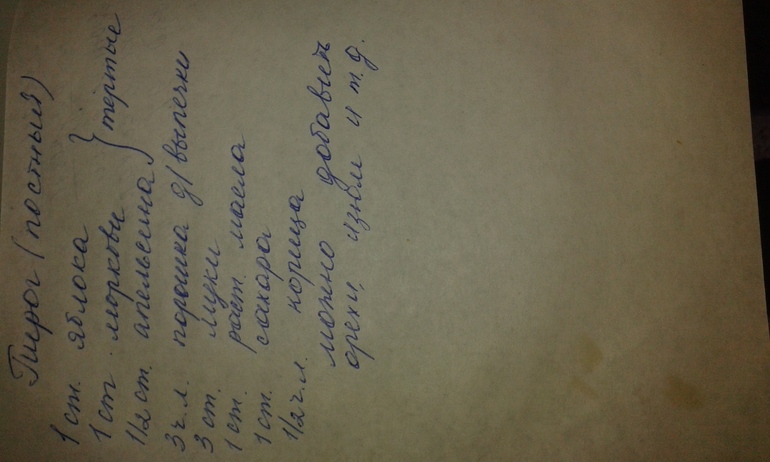 Пирог (постный)
1 ст. яблока
1 ст. моркови } тёртые
1/2 ст. апельсина
3 ч.л. порошка д/выпечки
3 ст. муки
1 ст. раст. масла
1 ст. сахара
1/2 ч.л. корица
можно добавить
орехи, изюм и т.д.